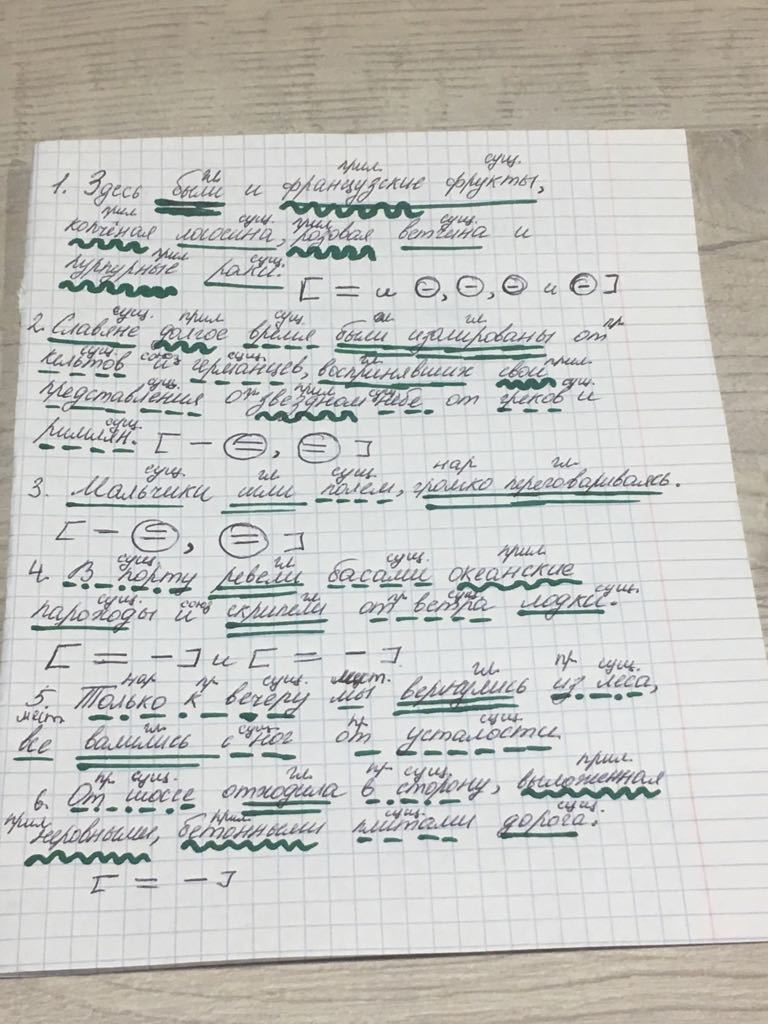 прил. сущ.
1. Здесь были и французские фрукты,
прил сущ. прил сущ.
копчёная лососина, розовая ветчина и
прил сущ.
пурпурные раки. [ = и ⊖, ⊖, ⊖ и ⊖ ]
сущ. прил сущ. гл.
2. Славяне долгое время были изолированы от пр
сущ. союз сущ. гл. прил
кельтов и германцев, воспринявших свои
сущ. прил сущ. сущ.
представления о звездном небе от греков и
сущ.
римлян. [ - (=), (=) ]
сущ. гл. сущ. нар гл.
3. Мальчики шли полем, громко переговариваясь.
[ - (=), (=) ]
сущ. гл. сущ. прил
4. В порту ревели басами океанские
сущ. союз гл. пр сущ. сущ.
пароходы и скрипели от ветра лодки.
[ = - ] и [ = - ].
нар пр сущ. мест. гл. пр сущ.
5. Только к вечеру мы вернулись из леса,
мест гл. сущ. пр сущ.
все валились с ног от усталости.
пр сущ. гл. пр сущ. прил.
6. От шоссе отходила в сторону, выложенная
прил прил сущ. сущ.
неровными, бетонными плитами дорога.
[ = - ]